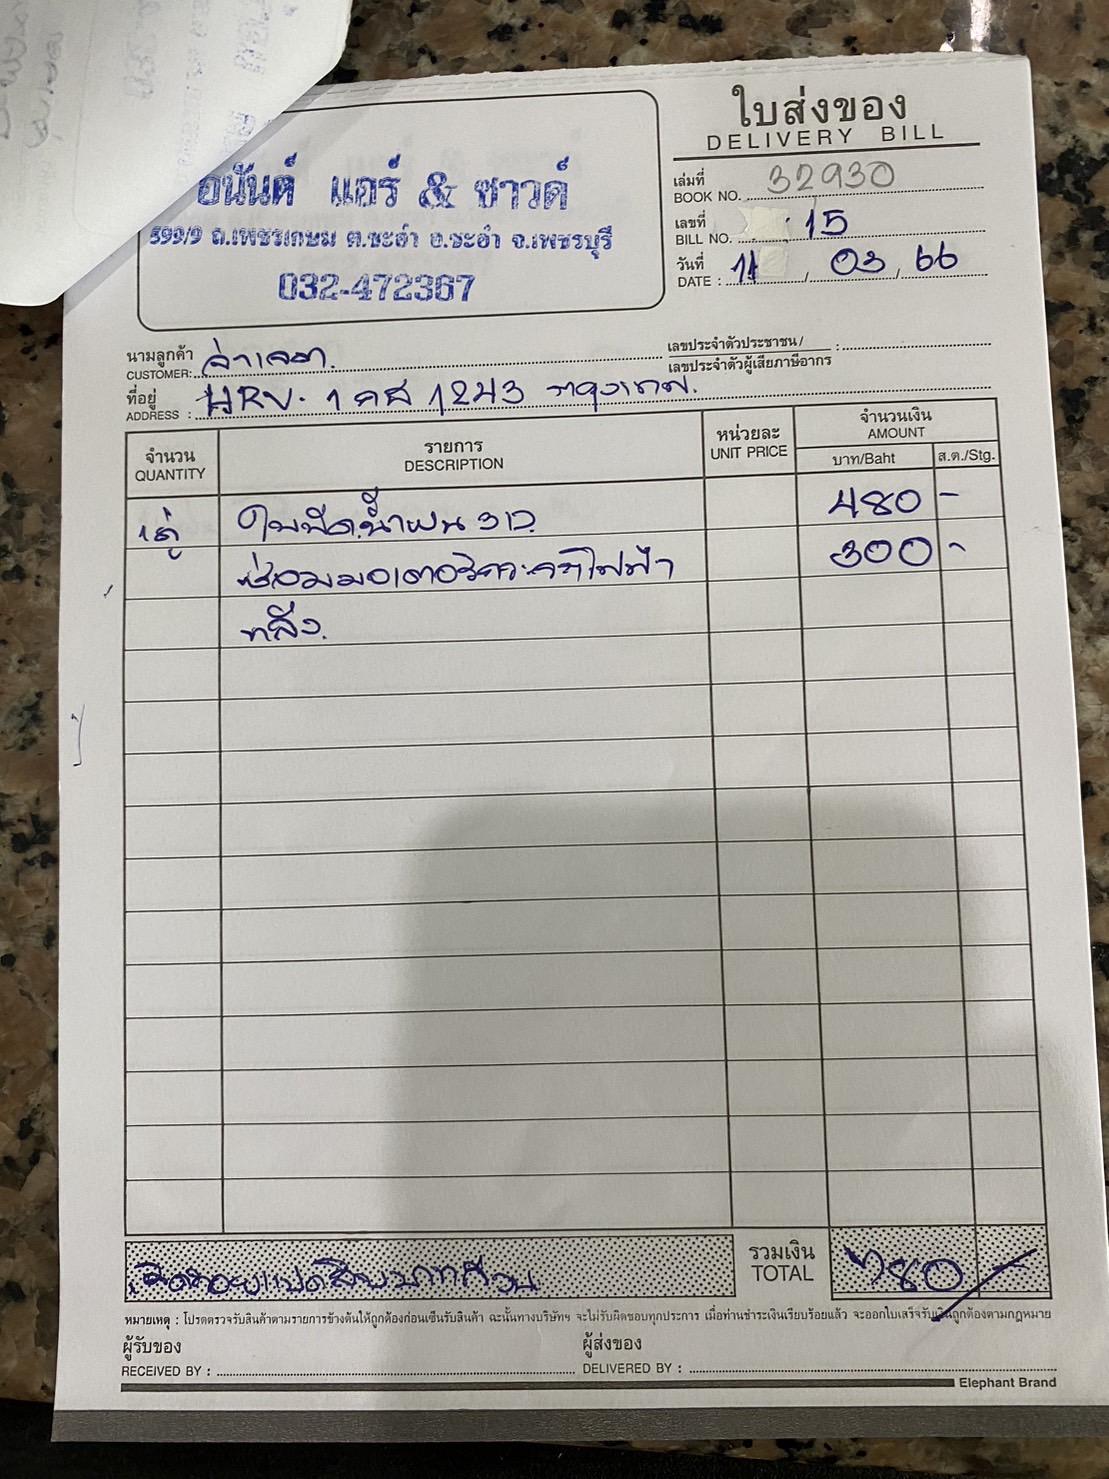 ใบส่งของ
DELIVERY BILL
อนันต์ แอร์ & ซาวด์
599/9 ถ.เพชรเกษม ต.ชะอำ อ.ชะอำ จ.เพชรบุรี
032-472367
เล่มที่
BOOK NO. 32930
เลขที่
BILL NO. 15
วันที่
DATE : 11 / 03 / 66
นามลูกค้า
CUSTOMER: จ่าเจตา.
เลขประจำตัวประชาชน /
เลขประจำตัวผู้เสียภาษีอากร :
ที่อยู่
ADDRESS : HRV. 1 กส 1243 กรุงเทพ.
จำนวน
QUANTITY
รายการ
DESCRIPTION
หน่วยละ
UNIT PRICE
จำนวนเงิน
AMOUNT
บาท/Baht
ส.ต./Stg.
1คู่ ใบปัดน้ำฝน 480 -
ซ่อมมอเตอร์ ไฟฟ้า 300 -
หลัง.
เจ็ดร้อยแปดสิบบาทถ้วน
รวมเงิน
TOTAL
780 -
หมายเหตุ : โปรดตรวจรับสินค้าตามรายการข้างต้นให้ถูกต้องก่อนเซ็นรับสินค้า ฉะนั้นทางบริษัทฯ จะไม่รับผิดชอบทุกประการ เมื่อท่านชำระเงินเรียบร้อยแล้ว จะออกใบเสร็จรับเงินถูกต้องตามกฎหมาย
ผู้รับของ
RECEIVED BY :
ผู้ส่งของ
DELIVERED BY :
Elephant Brand